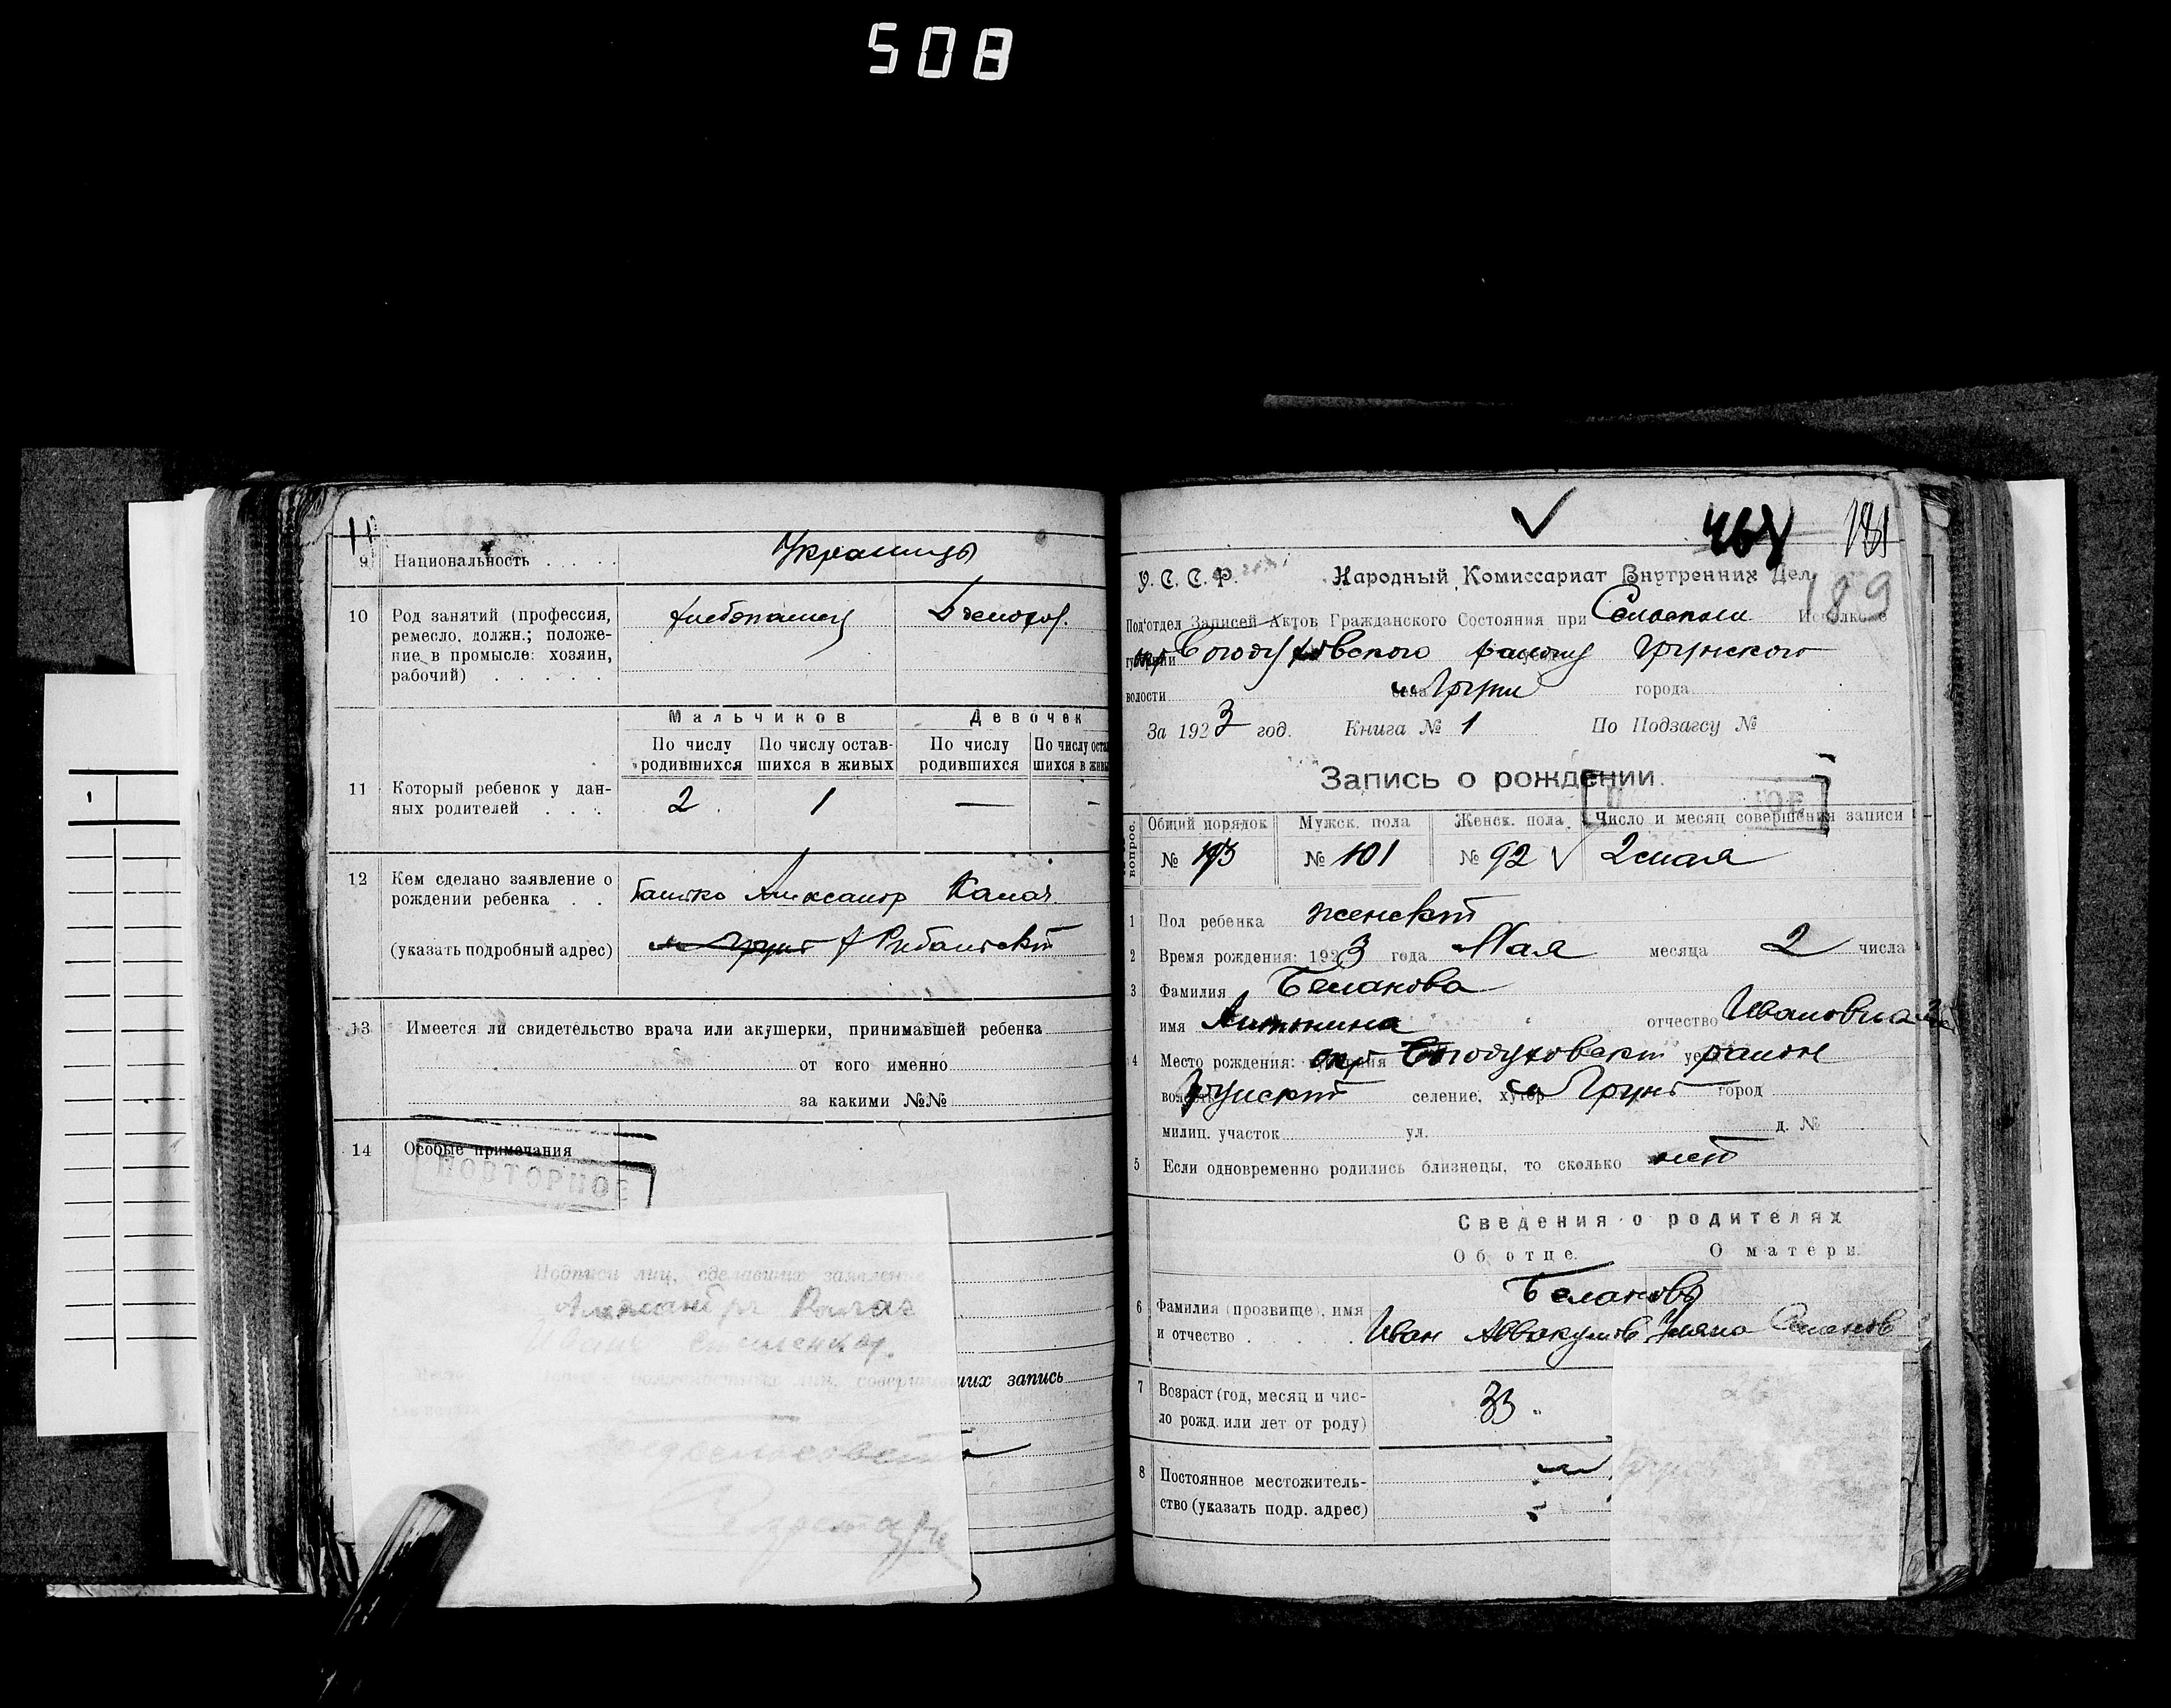 508
11
9 Национальность . . . . Украинцы
10 Род занятий (профессия,
ремесло, должн.; положе-
ние в промысле: хозяин,
рабочий) . . . . .
Хлебопашец Домохоз.
Мальчиков Девочек
По числу родившихся По числу остав-шихся в живых По числу родившихся По числу оста
шихся в живы
11 Который ребенок у дан-
ных родителей . . . 2 1 — -
12 Кем сделано заявление о
рождении ребенка . . батько Александр
(указать подробный адрес)
13 Имеется ли свидетельство врача или акушерки, принимавшей ребенка
от кого именно
за какими №№
14 Особые примечания
ПОВТОРНОЕ
Подписи лиц, сделавших заявление
Иван
совершивших запись
Секретарь
181
189
У. С. С. Р. Народный Комиссариат Внутренних Дел
Под'отдел Записей Актов Гражданского Состояния при Сельском Исполкоме
Богодуховского району Грунского
волости села Груни города
За 1923 год. Книга № 1 По Подзагсу №
Запись о рождении.
вопрос. Общий порядок Мужск. пола Женск. пола Число и месяц совершения записи
№ 193 № 101 № 92 2 мая
1 Пол ребенка женский
2 Время рождения: 1923 года Мая месяца 2 числа
3 Фамилия Белакова
имя Антонина отчество Ивановна
4 Место рождения: окр Богодуховский район
Грунский селение, хутор Грунь город
милиц. участок ул. д. №
5 Если одновременно родились близнецы, то сколько нет
Сведения о родителях
Об отце. О матери.
Белаковы
6 Фамилия (прозвище), имя
и отчество . . . . Иван Аввакумов Уляна Семенов
7 Возраст (год, месяц и чис-
ло рожд. или лет от роду) 33
8 Постоянное местожитель-
ство (указать подр. адрес)